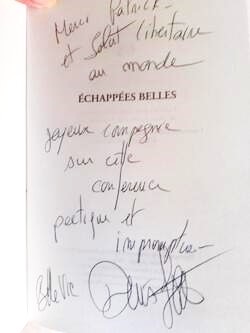 Merci Patrick -
et Salut libertaire
au monde
ÉCHAPPÉES BELLES
Joyeux compagnie
sur cette
conférence
poétique et
impromptue -
Belle Vie